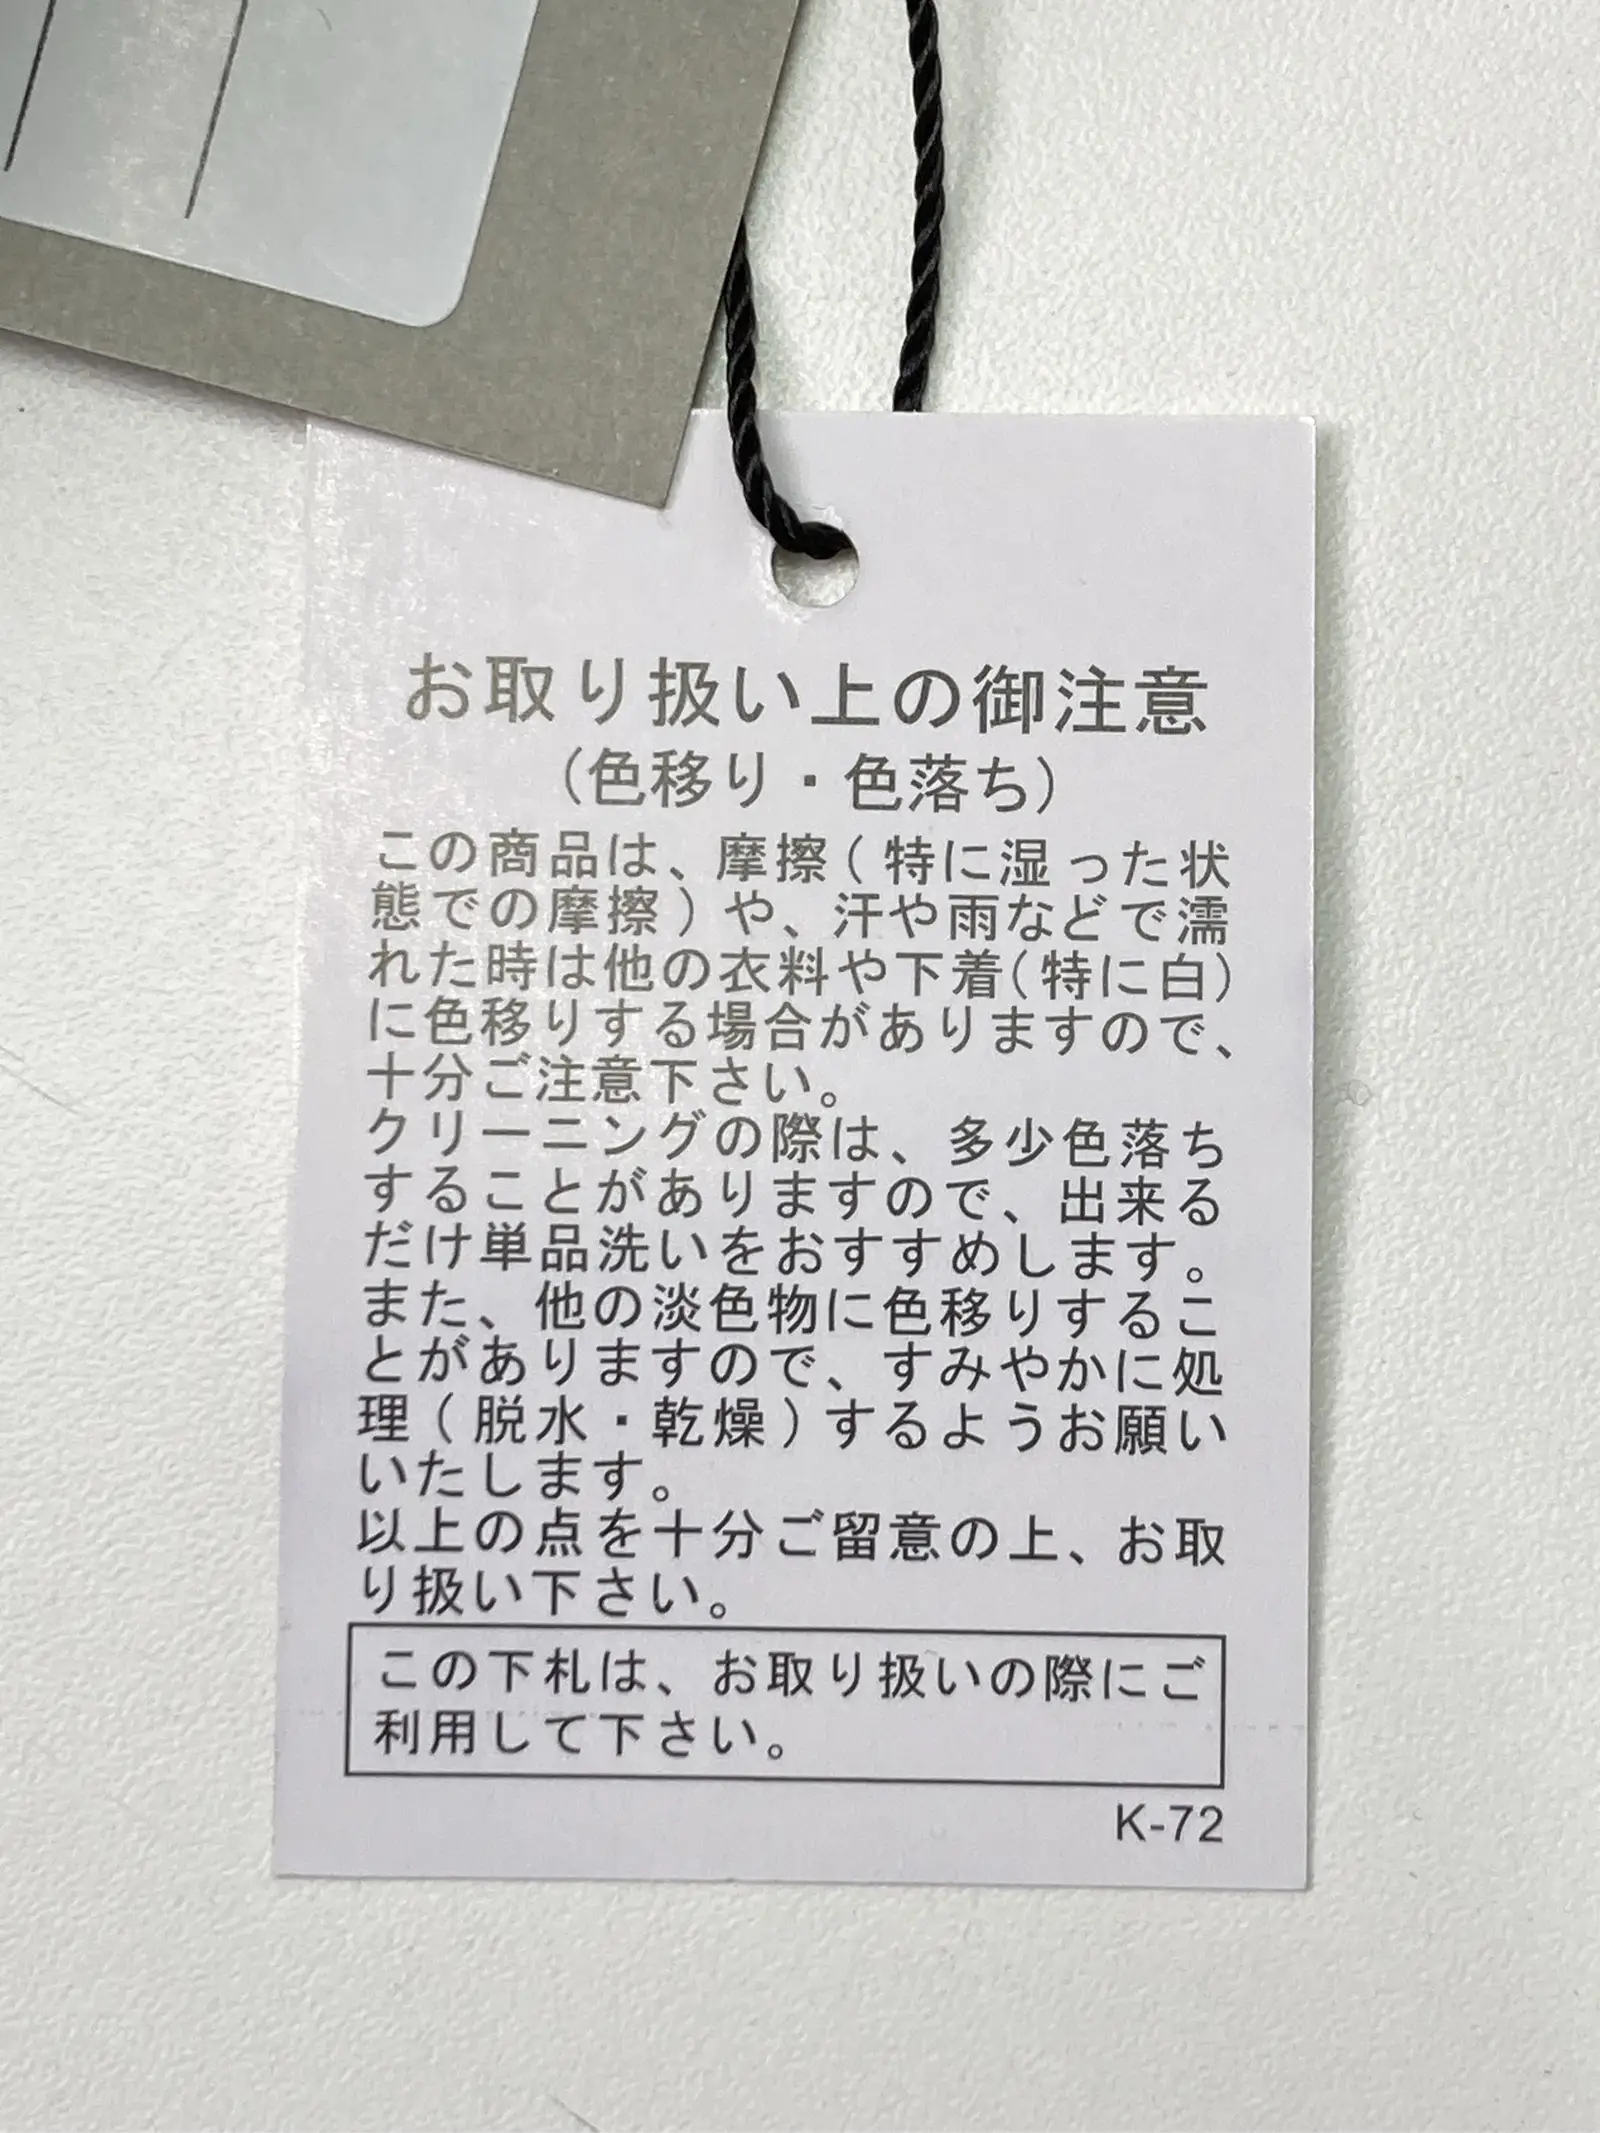 お取り扱い上の御注意
(色移り・色落ち)
この商品は、摩擦(特に湿った状
態での摩擦)や、汗や雨などで濡
れた時は他の衣料や下着(特に白)
に色移りする場合がありますので、
十分ご注意下さい。
クリーニングの際は、多少色落ち
することがありますので、出来る
だけ単品洗いをおすすめします。
また、他の淡色物に色移りするこ
とがありますので、すみやかに処
理(脱水・乾燥)するようお願い
いたします。
以上の点を十分ご留意の上、お取
り扱い下さい。
この下札は、お取り扱いの際にご
利用して下さい。
K-72